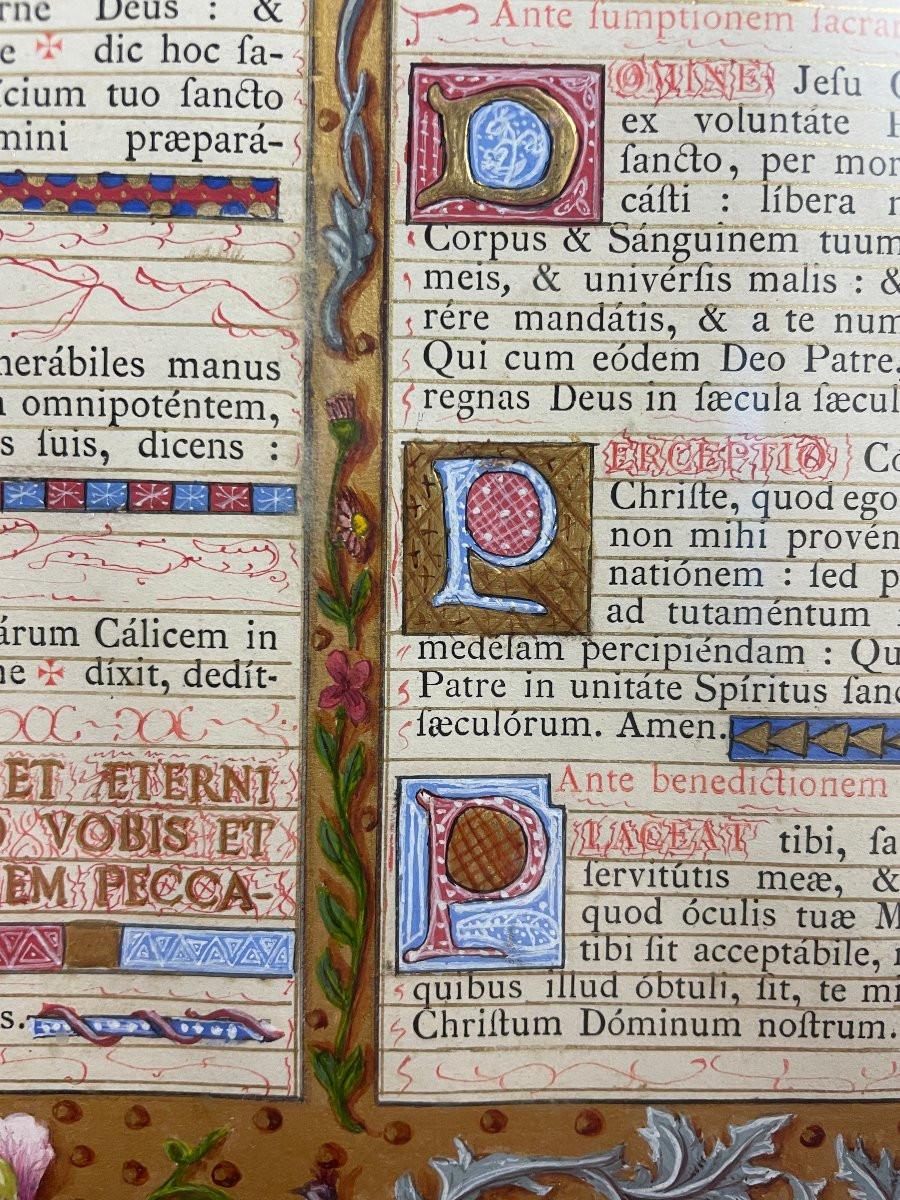 rne Deus : &
e ✠ dic hoc ſa-
ícium tuo ſancto
mini præpará-
nerábiles manus
n omnipoténtem,
s ſuis, dicens :
árum Cálicem in
ne ✠ díxit, dedít-
ET ÆTERNI
O VOBIS ET
EM PECCA-
s.
Ante ſumptionem ſacram
DOMINE Jeſu C
ex voluntáte P
ſancto, per mor
cáſti : líbera m
Corpus & Sánguinem tuum
meis, & univérſis malis : &
rére mandátis, & a te num
Qui cum eódem Deo Patre.
regnas Deus in ſæcula ſæcul
PERCEPTIO Co
Chriſte, quod ego
non mihi provén
natiónem : ſed p
ad tutaméntum
medélam percipiéndam : Qu
Patre in unitáte Spíritus ſanc
ſæculórum. Amen.
Ante benedictionem
PLACEAT tibi, ſa
ſervitútis meæ, &
quod óculis tuæ M
tibi ſit acceptábile,
quibus illud óbtuli, ſit, te mi
Chriſtum Dóminum noſtrum.